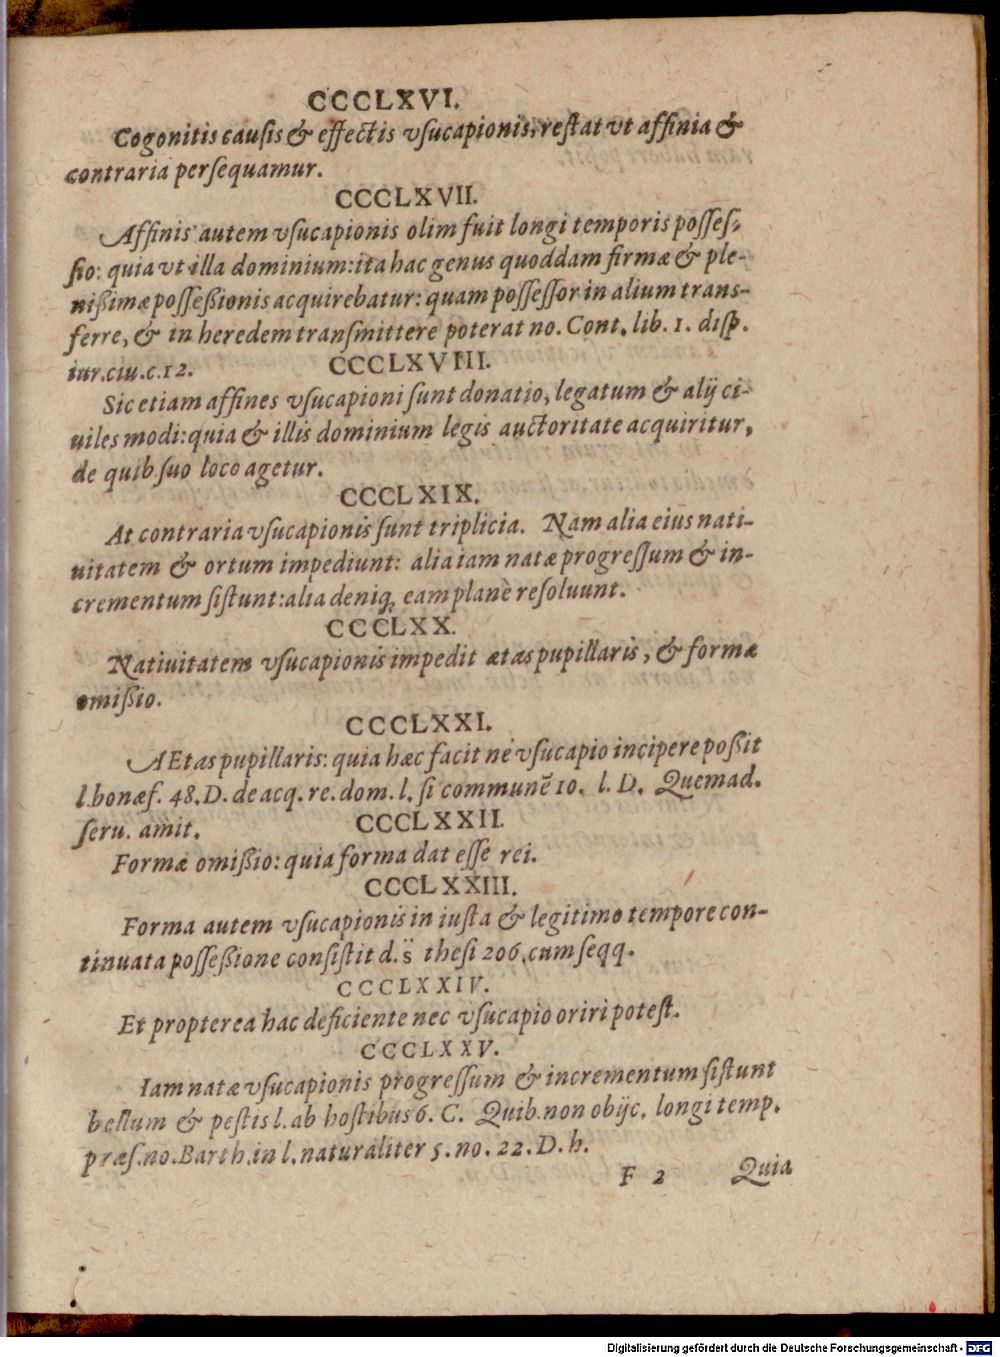 CCCLXVI.
Cogonitis causis & effectis vſucapionis, reſtat vt affinia &
contraria perſequamur.
CCCLXVII.
Affinis autem vſucapionis olim fuit longi temporis poſſeſ-
ſio: quia vt illa dominium: ita hac genus quoddam firmæ & ple-
nißimæ poſſeßionis acquirebatur: quam poſſeſſor in alium trans-
ferre, & in heredem tranſmittere poterat no. Cont. lib. 1. diſp.
iur. ciu. c. 12.
CCCLXVIII.
Sic etiam affines vſucapioni ſunt donatio, legatum & alij ci-
uiles modi: quia & illis dominium legis auctoritate acquiritur,
de quib. ſuo loco agetur.
CCCLXIX.
At contraria vſucapionis ſunt triplicia. Nam alia eius nati-
uitatem & ortum impediunt: alia iam natæ progreſſum & in-
crementum ſiſtunt: alia deniq; eam planè reſoluunt.
CCCLXX.
Natiuitatem vſucapionis impedit ætas pupillaris, & formæ
omißio.
CCCLXXI.
AEtas pupillaris: quia hæc facit ne vſucapio incipere poßit
l. bonæf. 48. D. de acq. re. dom. l. ſi communẽ 10. l. D. Quemad.
ſeru. amit.
CCCLXXII.
Formæ omißio: quia forma dat eſſe rei.
CCCLXXIII.
Forma autem vſucapionis in iuſta & legitimo tempore con-
tinuata poſſeßione conſiſtit d. s̈ theſi 206. cum ſeqq.
CCCLXXIV.
Et propterea hac deficiente nec vſucapio oriri poteſt.
CCCLXXV.
Iam natæ vſucapionis progreſſum & incrementum ſiſtunt
bellum & peſtis l. ab hoſtibus 6. C. Quib. non obijc. longi temp.
præſ. no. Barth. in l. naturaliter 5. no. 22. D. h.
F 2 Quia
Digitalisierung gefördert durch die Deutsche Forschungsgemeinschaft - DFG